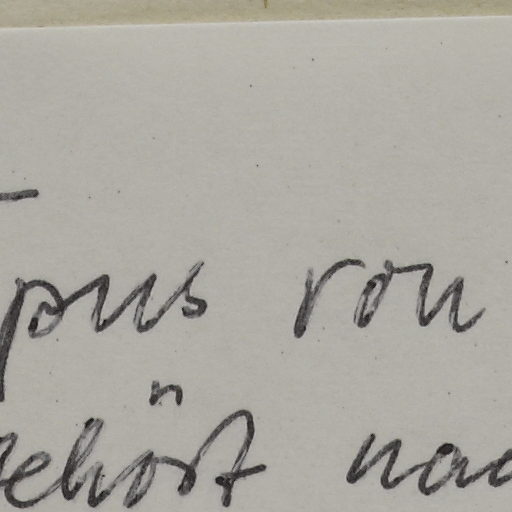 pus von
gehört nac